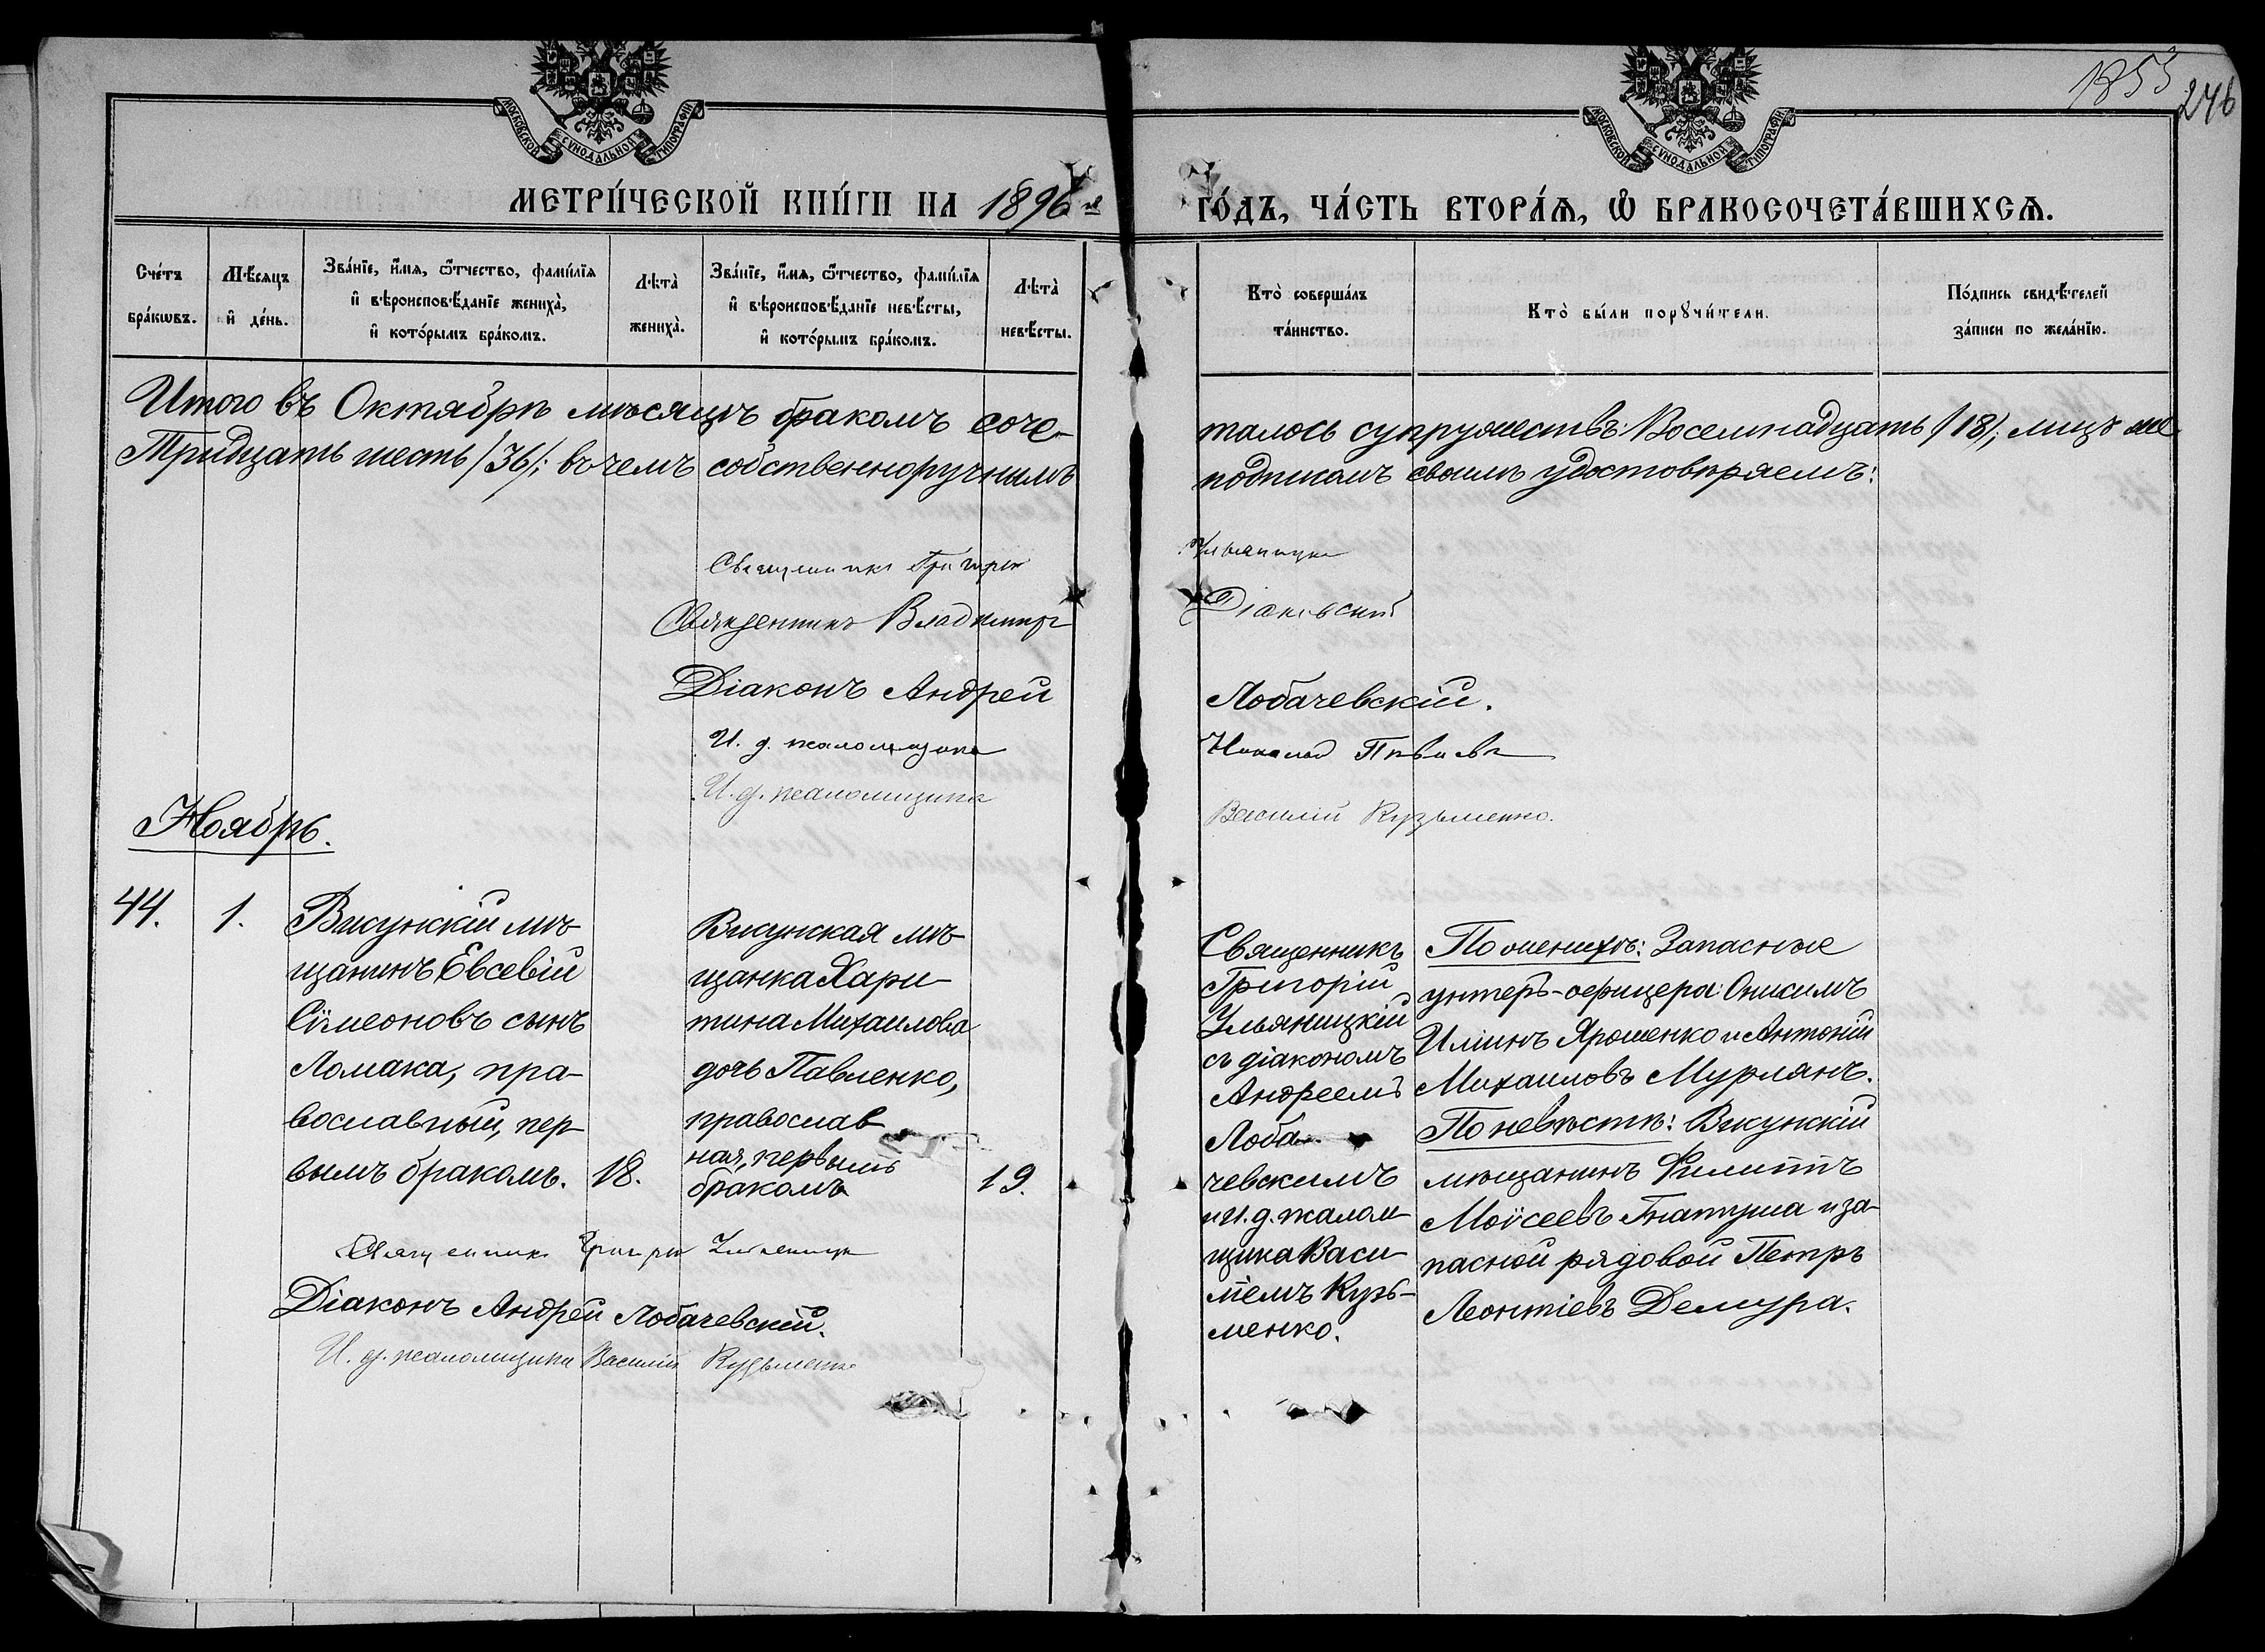 МОСКОВСКОЙ СУНОДАЛЬНОЙ ТИПОГРАФІИ
МОСКОВСКОЙ СУНОДАЛЬНОЙ ТИПОГРАФІИ
1855
246
МЕТРИ́ЧЕСКОЙ КНИ́ГИ НА 1896 й
ГО́ДЪ, ЧА́СТЬ ВТОРА́Ѧ, Ѽ БРАКОСОЧЕТА́ВШИХСѦ.
Сче́тъ
бра́кѡвъ.
Мѣ́сяцъ
и҆ де́нь.
Зва́нїе, и҆́мя, ѻ҆́тчество, фами́лїя
и҆ вѣроисповѣ́данїе жениха̀,
и҆ кото́рымъ бра́комъ.
Лѣта̀
жениха̀.
Зва́нїе, и҆́мя, ѻ҆́тчество, фами́лїя
и҆ вѣроисповѣ́данїе невѣ́сты,
и҆ кото́рымъ бра́комъ.
Лѣта̀
невѣ́сты.
Кто̀ соверша́лъ
та́инство.
Кто̀ бы́ли порꙋчи́тели.
По́дпись свидѣ́телей
за́писи по жела́нїю.
Итого въ Октябрѣ мѣсяцѣ бракомъ соче-
талось супружествъ: Восемнадцать /18/; лицъ же
Тридцать шесть /36/; въ чемъ собственноручнымъ
подписомъ своимъ удостовѣряемъ:
Священникъ Григорій
Ульяницкій
Священникъ Владимиръ
Діаковскій
Діаконъ Андрей
Лобачевскій.
И. д. псаломщика
Николай
И. д. псаломщика
Василій Кузьменко.
Ноябрь.
44.
1.
Висунскій мѣ-
щанинъ Евсевій
Сѵмеоновъ сынъ
Ломака, пра-
вославный, пер-
вымъ бракомъ.
18.
Висунская мѣ-
щанка Хари-
тина Михаилова
дочь Павленко,
православ
ная, первымъ
бракомъ
19.
Священникъ
Григорій
Ульяницкій
съ діакономъ
Андреемъ
Лоба-
чевскимъ
и И. д. псалом-
щика Васи-
ліемъ Кузь-
менко.
По женихѣ: Запасные
унтеръ-офицера: Онисимъ
Иліинъ Ярошенко и Антоній
Михаиловъ Мурлянъ.
По невѣстѣ: Висунскій
мѣщанинъ Филиппъ
Моѵсеевъ Гнатуша и за-
пасной рядовой Петръ
Леонтіевъ Демура.
Священникъ Григорій Ульяницкій
Діаконъ Андрей Лобачевскій.
И. д. псаломщика Василій Кузьменко